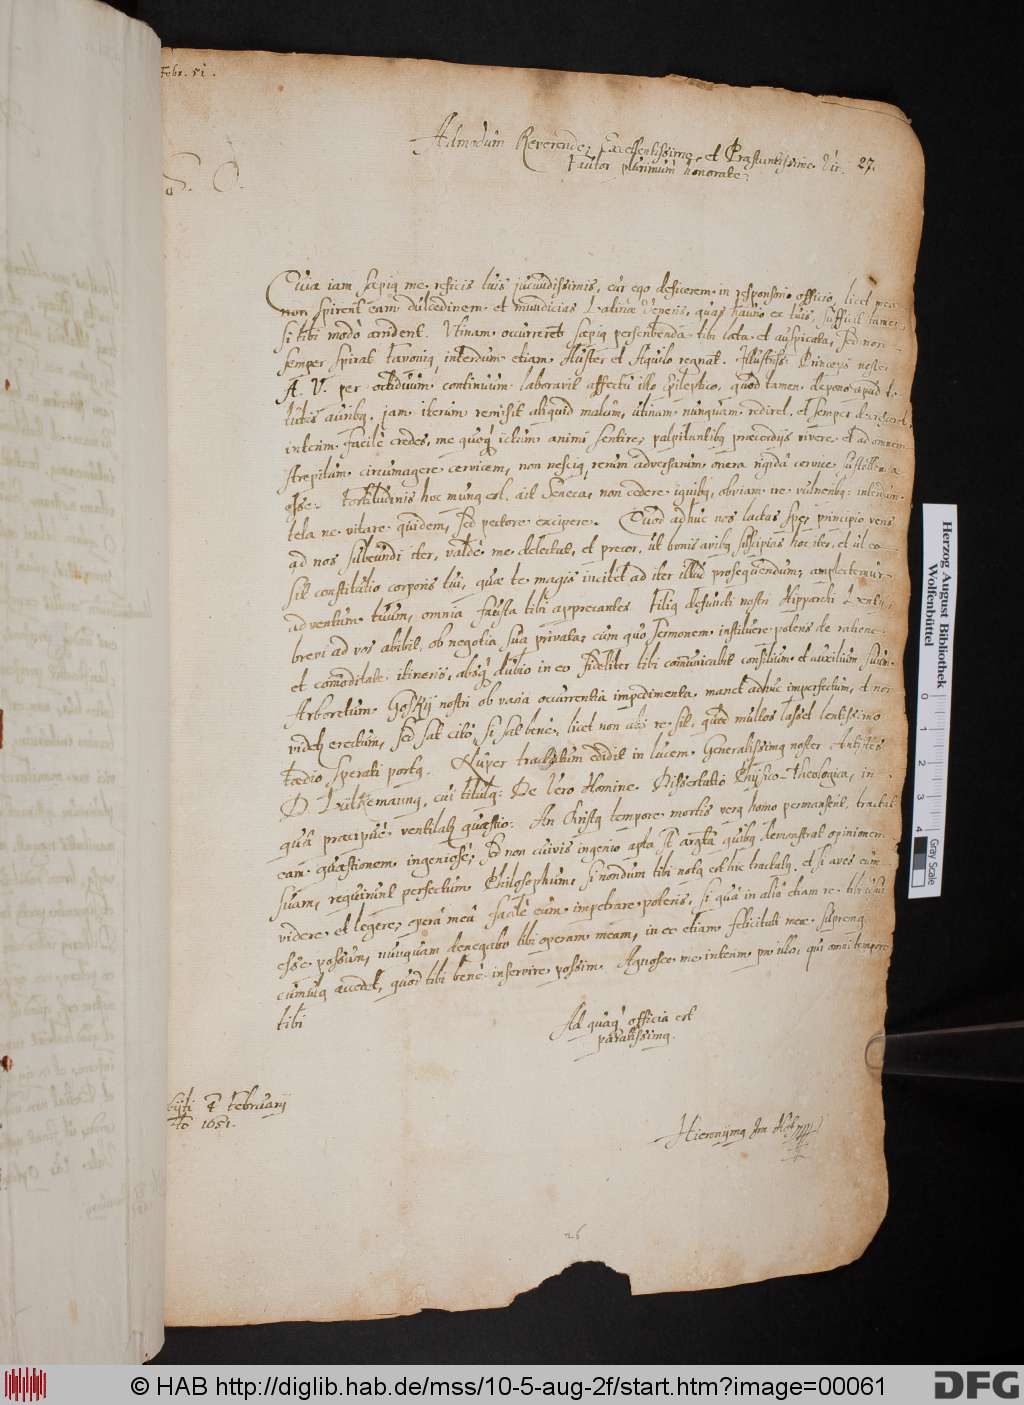 Febr. 51.
Admodum Reverende, Excellentissime, et Præstantissime Vir. 27.
Fautor plurimum honorate.
S.
Cum iam sæpiq me reficis tuis jucundissimis, cur ego deficerem in responsorio officio, licet mea
non spirent eam dulcedinem et mundicias Latinæ Veneris, quas haurio ex tuis, sufficit tamen
si tibi modò arrident. Utinam occurrerent sæpiq perscribenda tibi læta et auspicata, sed non
semper spirat Favoniq, interdum etiam Auster et Aquilo regnat. Illustriss: Princeps noster
A. V. per continuum laboravit affectu illo Epileptico, quod tamen depono apud t.
auribq. jam iterum remisit aliquid malum, utinam nunquam rediret, et semper
interim facilè credes, me quoq ictum animi sentire, palpitantibq præcordijs vivere et ad omnem
strepitum circumagere cervicem, non nesciq rerum adversarum onera rigidâ cervice
esse. Fortitudinis hoc munq est, ait Seneca, non cedere ignibq, obviam ire vulneribq: interdum
tela ne vitare quidem, sed pectore excipere. Quod adhuc nos lactas spe, principio veris
ad nos subeundi iter, valdè me delectat, et precor, ut bonis avibq suscipias hoc iter, et ut ea
sit constitutio corporis tui, quæ te magis incitet ad iter illud prosequendum, amplectemur
adventum tuum, omnia fausta tibi apprecantes. Filiq defuncti nostri Hipparchi
brevi ad vos abibit, ob negotia sua privata, cum quo sermonem instituere poteris de ratione
et commoditate itineris, absq dubio in eo fideliter tibi communicabit consilium et auxilium suum.
Arboretum Goskij nostri ob varia occurrentia impedimenta manet adhuc imperfectum, et non
videtq erectum, sed sat citò, si sat benè, licet non abs re sit, quod multos lasset lentissimo
tœdio sperati portq. Nuper tractatum edidit in lucem Generalissimq noster Antistes
D. Lütkemannq, cui titulq: De Vero Homine Dissertatio Physico-theologica, in
quâ præcipuè ventilatq quæstio: An Christq tempore mortis verq homo permanserit, tractat
eam quæstionem ingeniosè, sed non cuivis ingenio apta st argta quibq demonstrat opinionem
suam, requirunt perfectum Philosophum, si nondum tibi notq est hic tractatq, et si aves eum
videre et legere, operâ meâ facilè eum impetrare poteris, si quâ in aliâ etiam re tibi usui
esse possum, nunquam denegabo tibi operam meam, in eo etiam felicitati meæ
cumulq accedet, quod tibi benè inservire possim. Agnosce me interim pro illo, qui omni tempore
tibi
Ad quæq officia est
paratissimq.
4 Februarij
1651.
Hieronijmq Im Hof
26
Herzog August Bibliothek
Wolfenbüttel
0 1 2 3 4
Gray Scale
© HAB http://diglib.hab.de/mss/10-5-aug-2f/start.htm?image=00061
DFG